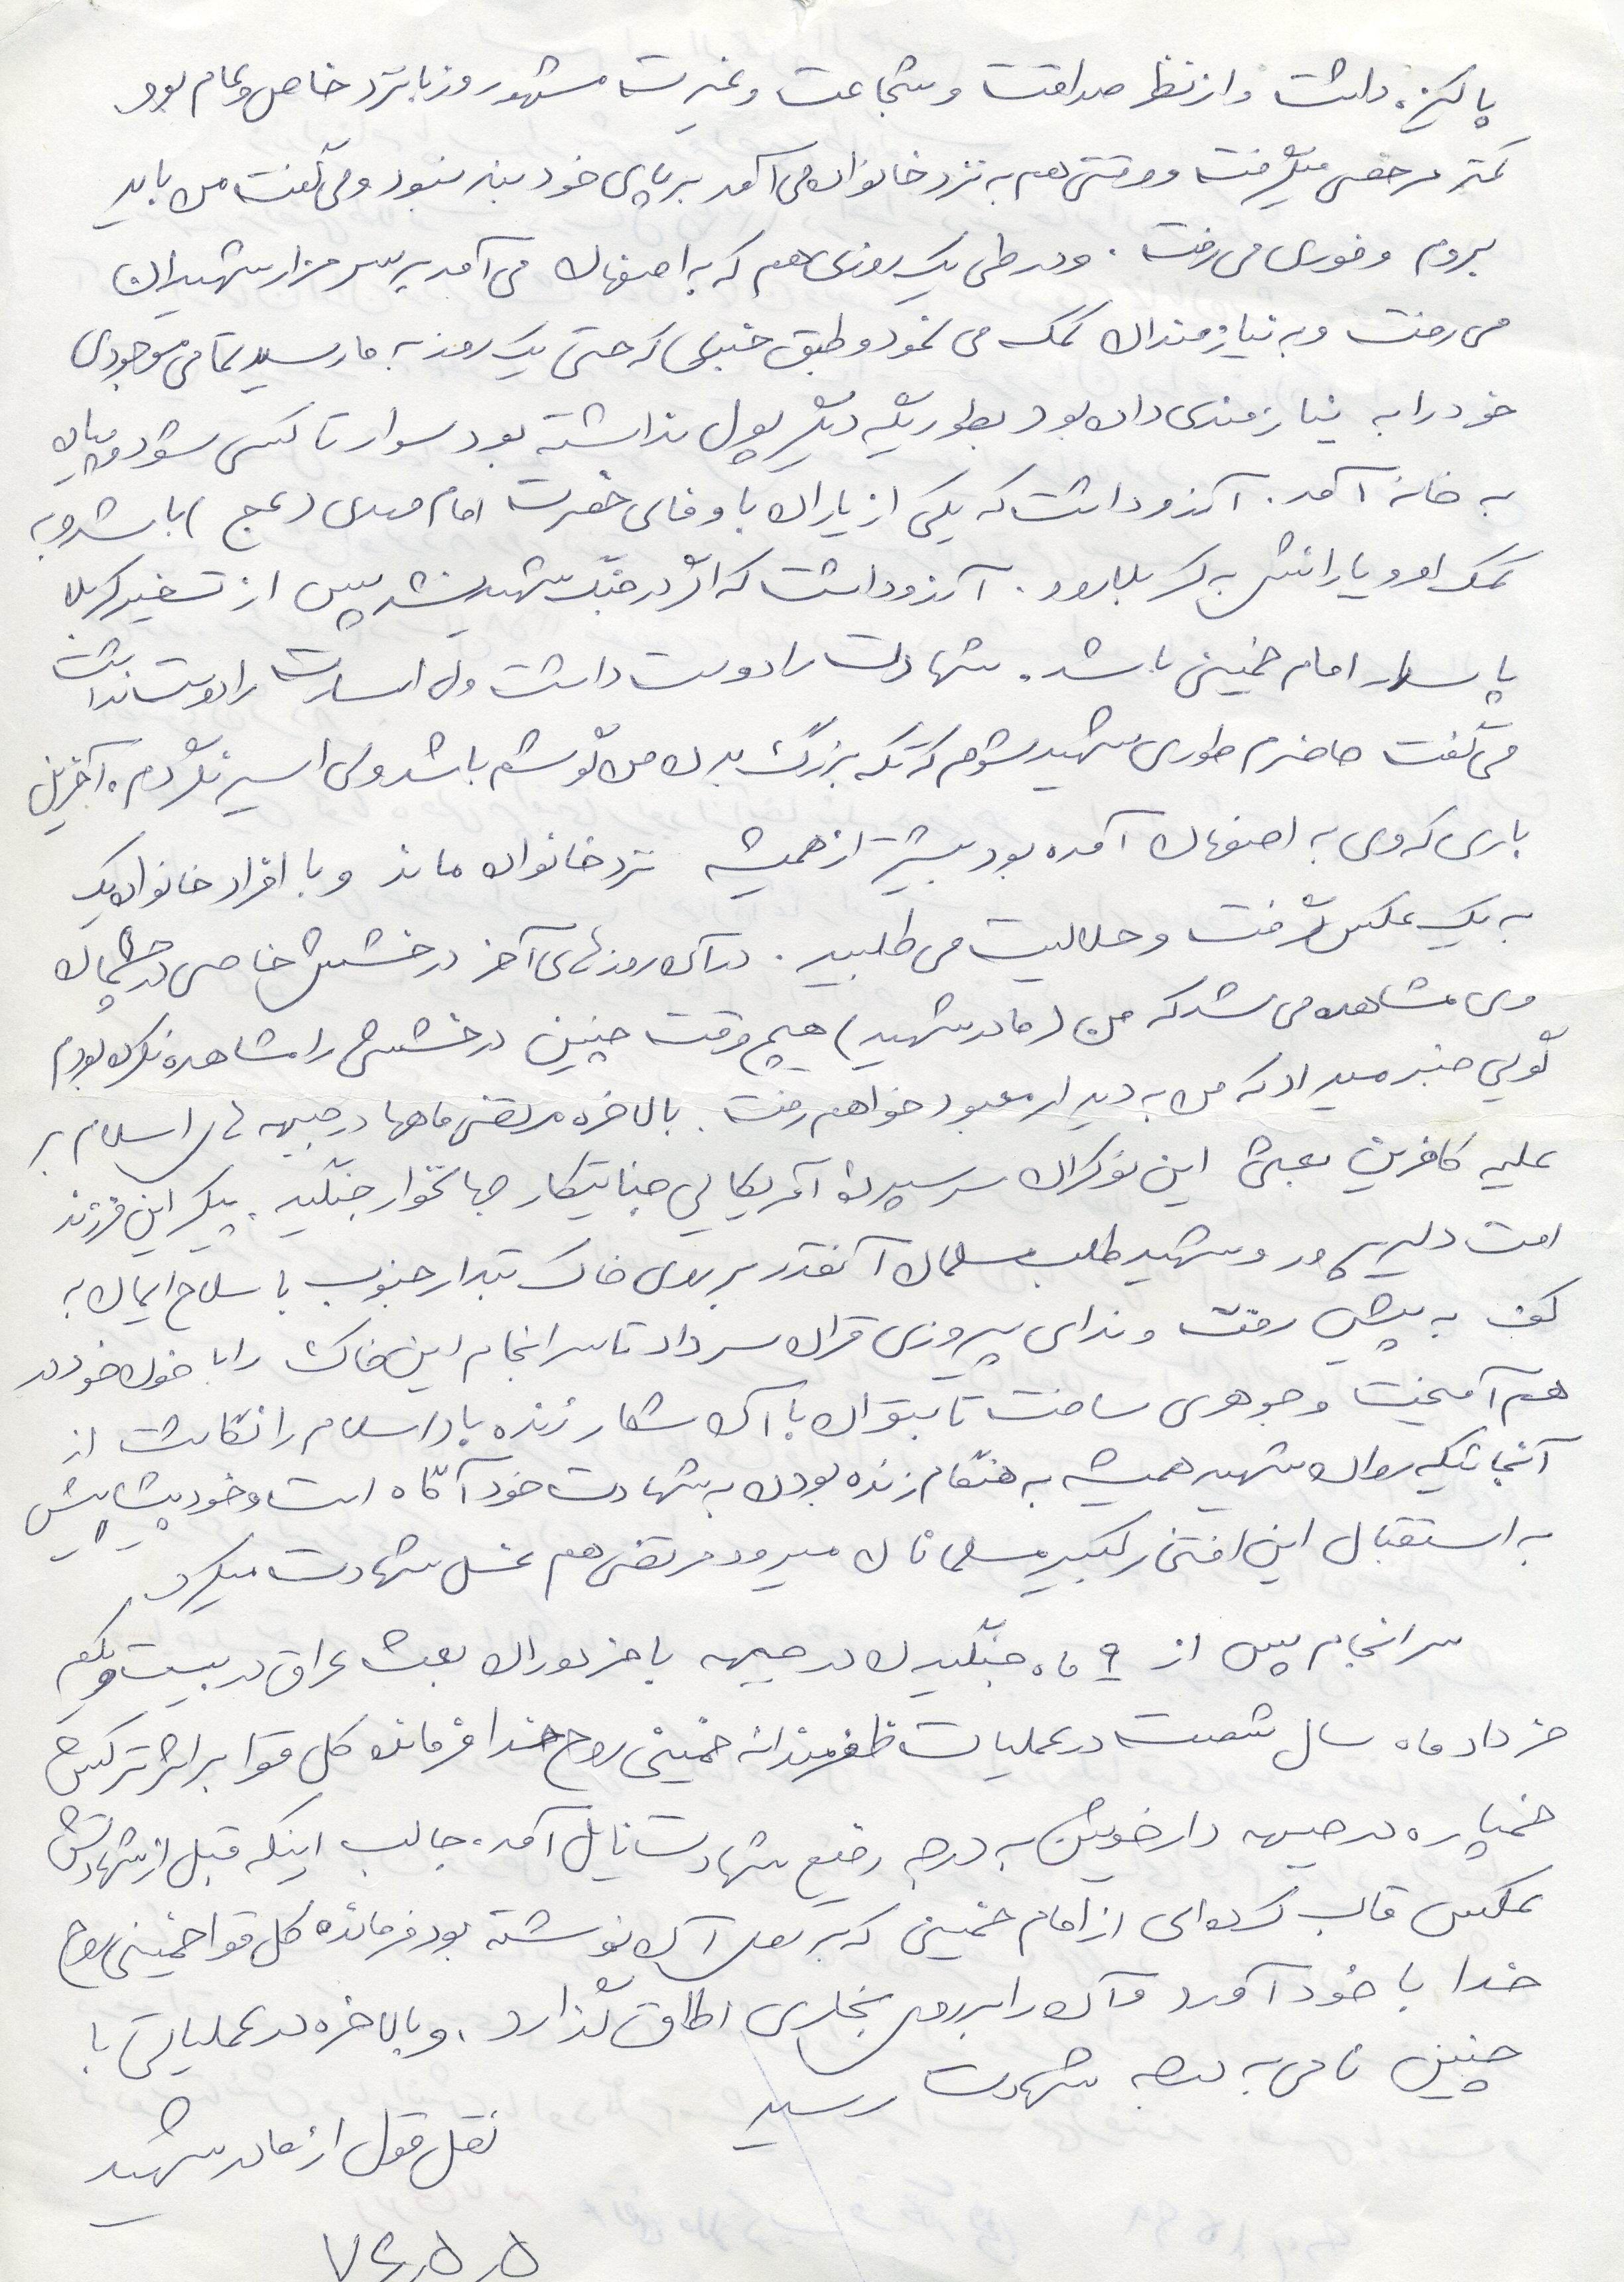 پاکیزه داشت و از نظر صداقت و شجاعت و غیرت مشهور و زبانزد خاص و عام بود
کمتر مرخصی میگرفت و وقتی هم به نزد خانواده می آمد بر پای خود بند نبود و می گفت من باید
بروم و فوری می رفت . و در طی یک روزی هم که به اصفهان می آمد بر سر مزار شهیدان
می رفت و به نیازمندان کمک می نمود و طبق خبری که حتی یک روز به ما رسید تمامی موجودی
خود را به نیازمندی داده بود بطوریکه دیگر پول نداشته بود سوار تاکسی شود و پیاده
به خانه آمد . آرزو داشت که یکی از یاران با وفای حضرت امام مهدی (عج) باشد و به
کمک او و یارانش به کربلا رود . آرزو داشت که اگر در جنگ شهید نشد پس از تسخیر کربلا
پاسدار امام خمینی باشد . شهادت را دوست داشت ولی اسارت را دوست نداشت
می گفت حاضرم طوری شهید شوم که تکه بزرگ بدن من گوشم باشد ولی اسیر نگردم . آخرین
باری که وی به اصفهان آمده بود بیشتر از همیشه نزد خانواده ماند و با افراد خانواده یک
به یک عکس گرفت و حلالیت می طلبید . در آن روزهای آخر درخشش خاصی در چشمان
وی مشاهده می شد که من (مادر شهید) هیچ وقت چنین درخششی را مشاهده نکرده بودم
گویی خبر میداد که من به دیدار معبود خواهم رفت . بالاخره مرتضی ماهها در جبهه های اسلام بر
علیه کافرین بعثی این نوکران سرسپرده آمریکایی جنایتکار جهانخوار جنگید . پیکر این فرزند
امت دلیر پرور و شهید طلب مسلمان آنقدر بر روی خاک تبدار جنوب با سلاح ایمان به
کف به پیش رفت و ندای پیروزی قران سر داد تا سرانجام این خاک را با خون خود در
هم آمیخت و جوهری ساخت تا بتوان با آن شعار زنده باد اسلام را نگاشت از
آنجائیکه روان شهید همیشه به هنگام زنده بودن به شهادت خود آگاه است و خود پیشاپیش
به استقبال این افتخار کبیر مسلمانان میرود مرتضی هم غسل شهادت میکرد .
سرانجام پس از ۹ ماه جنگیدن در جبهه با مزدوران بعث عراق در بیست و یکم
خرداد ماه سال شصت در عملیات ظفرمندانه خمینی روح خدا فرمانده کل قوا بر اثر ترکش
خمپاره در جبهه دارخوین به درجه رفیع شهادت نایل آمد . جالب اینکه قبل از شهادتش
عکس قاب کرده ای از امام خمینی که بر روی آن نوشته بود فرمانده کل قوا خمینی روح
خدا با خود آورد و آن را بر روی بخاری اطاق گذارد . و بالاخره در عملیاتی با
چنین نامی به درجه شهادت رسید
نقل قول از مادر شهید
۷۶٫۵٫۵